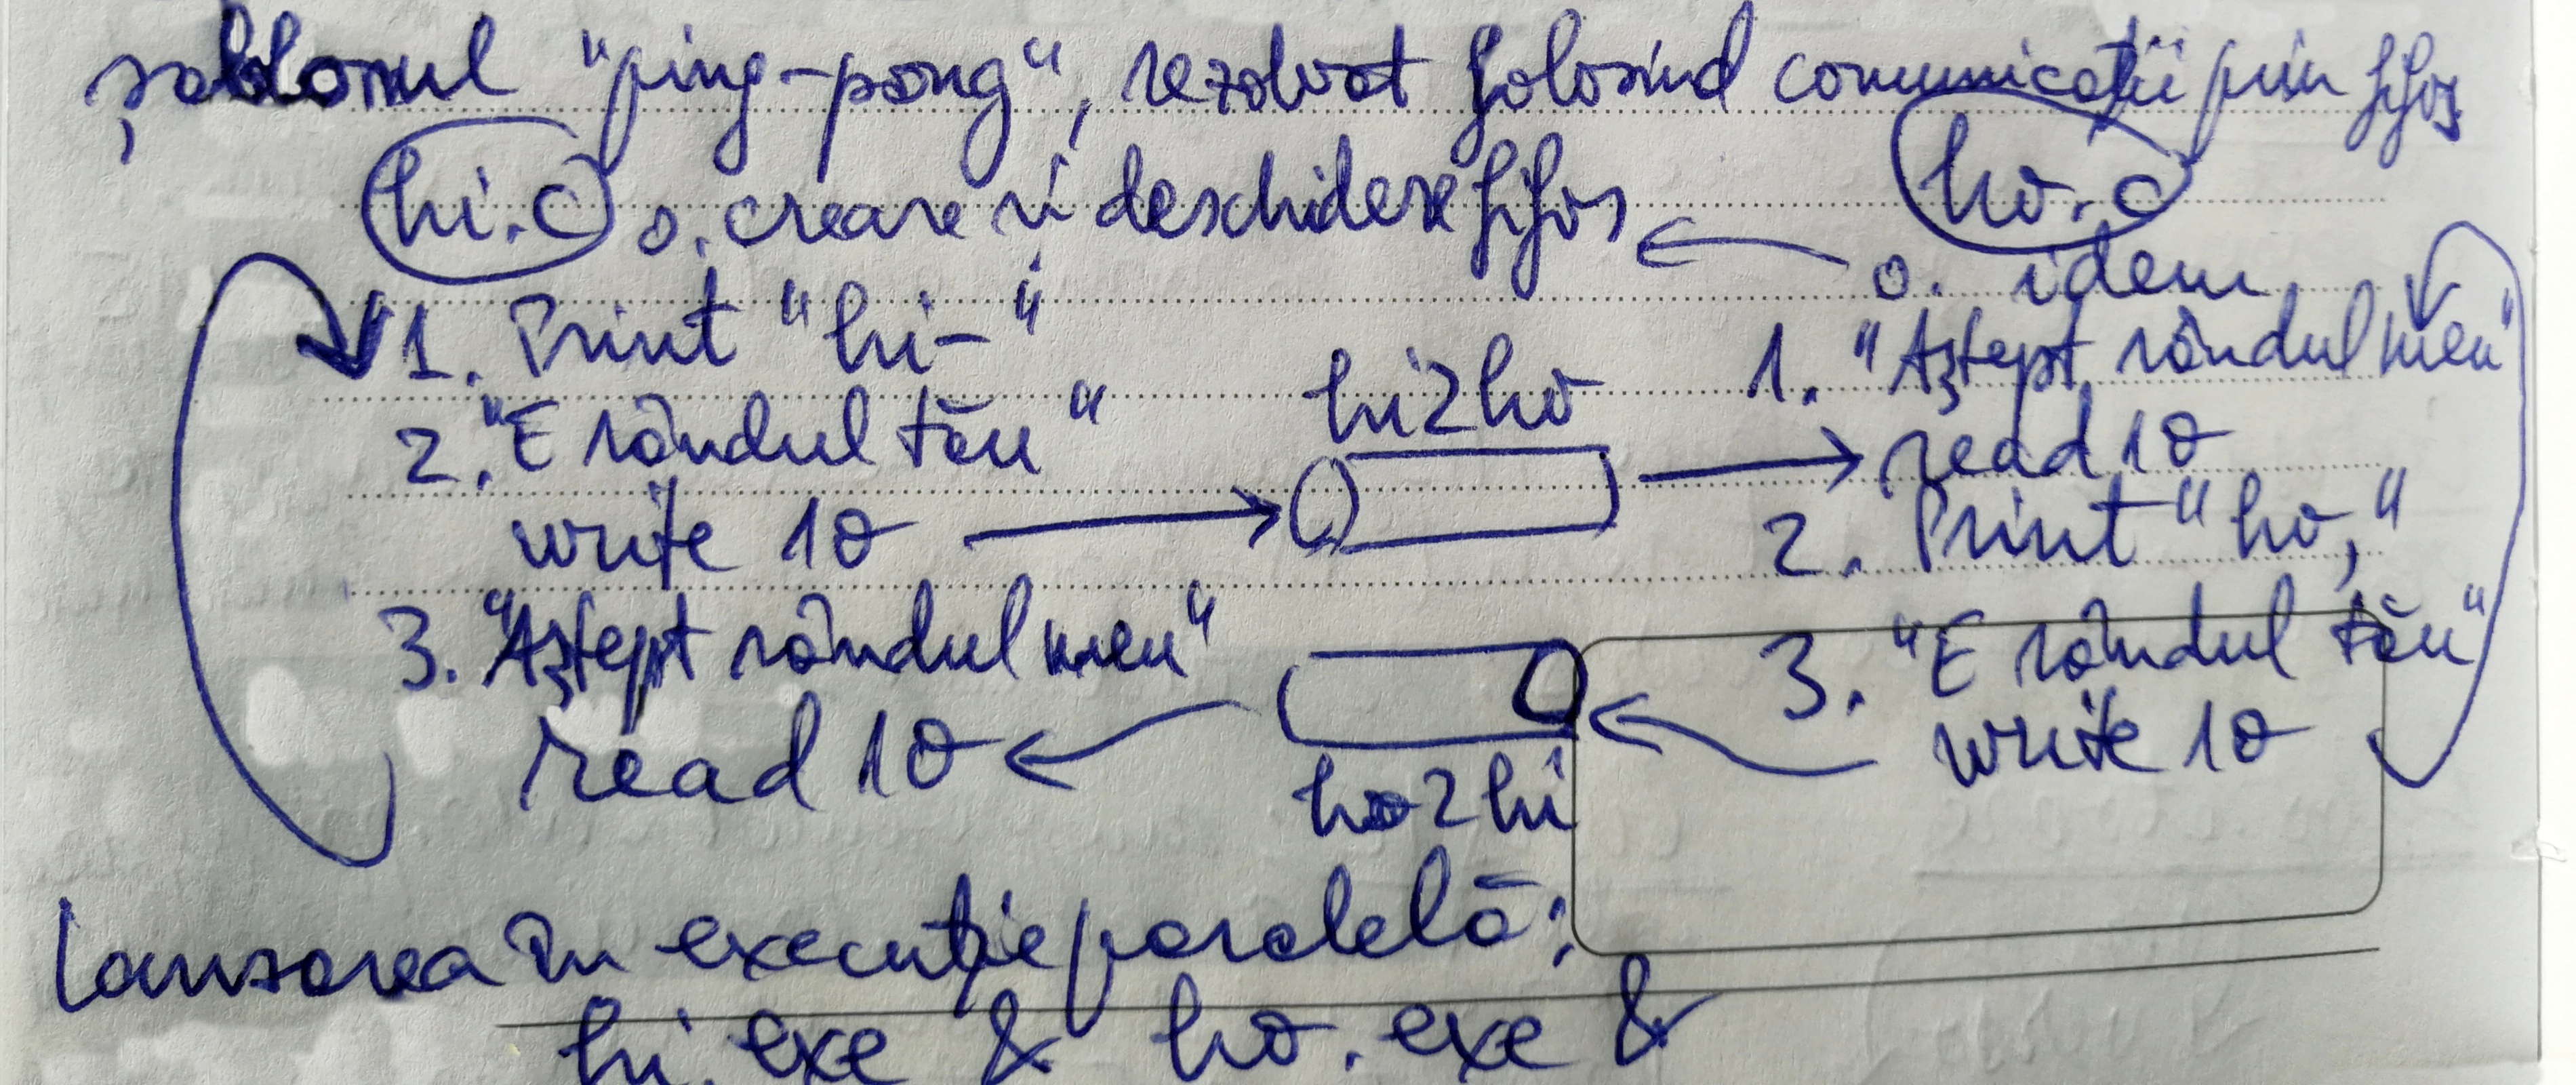 șablonul "ping-pong", rezolvat folosind comunicații prin fifos
hi.c 0. creare și deschidere fifos
ho.c
0. idem
1. Print "hi-"
2. "E rândul tău"
write 1O
3. "Aștept rândul meu"
read 1O
hi2ho
ho2hi
1. "Aștept rândul meu"
read 1O
2. Print "ho,"
3. "E rândul tău"
write 1O
Lansarea în execuție paralelă:
hi.exe & ho.exe &